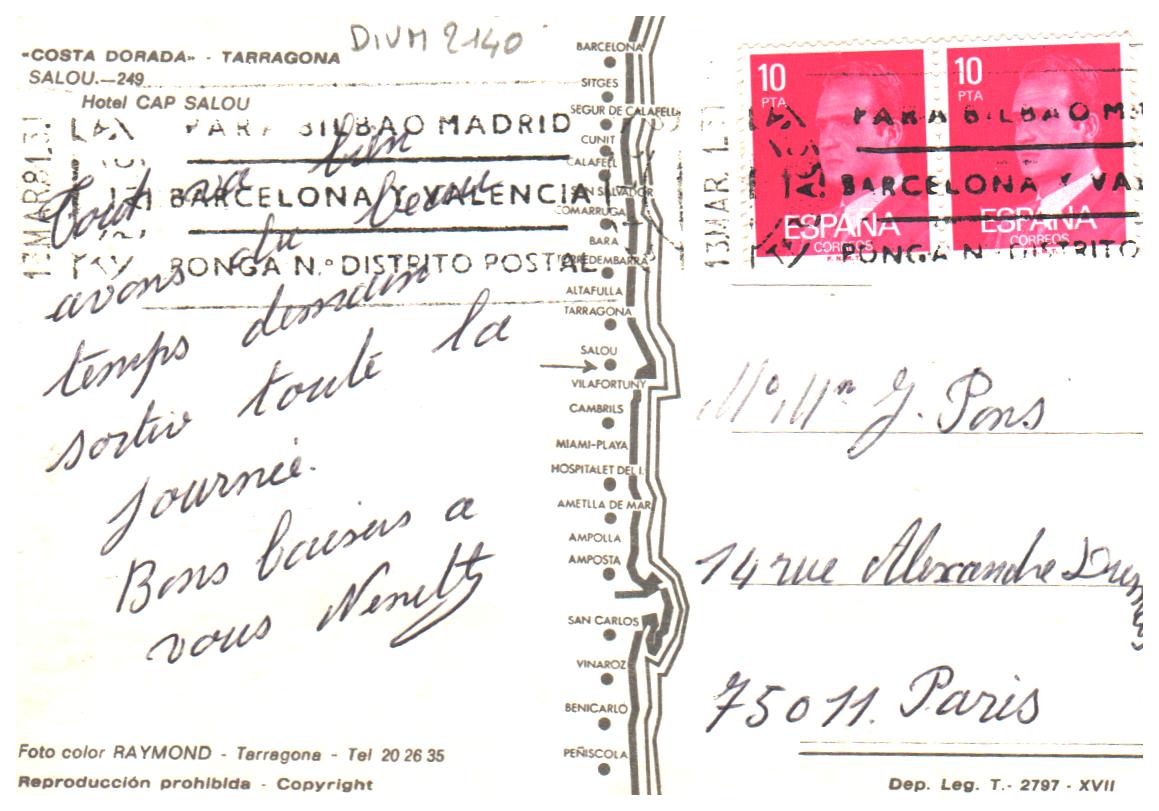 DIVM 2140
«COSTA DORADA» - TARRAGONA
SALOU.—249
Hotel CAP SALOU
13 MAR 81
PARA BILBAO MADRID
BARCELONA Y VALENCIA
PONGA N.º DISTRITO POSTAL
tout va bien
avons du beau
temps demain
sortir toute la
journée.
Bons baisers a
vous Nenette
Foto color RAYMOND - Tarragona - Tel 20 26 35
Reproducción prohibida - Copyright
BARCELONA
SITGES
SEGUR DE CALAFELL
CUNIT
CALAFELL
SAN SALVADOR
COMARRUGA
BARA
TORREDEMBARRA
ALTAFULLA
TARRAGONA
SALOU
VILAFORTUNY
CAMBRILS
MIAMI-PLAYA
HOSPITALET DEL I.
AMETLLA DE MAR
AMPOLLA
AMPOSTA
SAN CARLOS
VINAROZ
BENICARLO
PEÑISCOLA
10 PTA
ESPAÑA
CORREOS
10 PTA
ESPAÑA
CORREOS
13 MAR
PARA BILBAO M
BARCELONA Y VA
PONGA N DISTRITO
J. Pons
14 rue Alexandre Dumas
75011. Paris
Dep. Leg. T.- 2797 - XVII